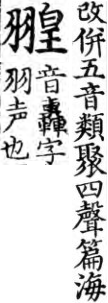 改併五音類聚四聲篇海
音轟字
羽声也